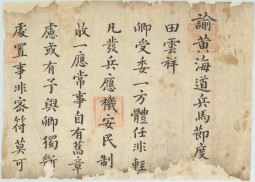 諭黃海道兵馬節度
田雲祥
卿受委一方體任非輕
凡發兵應機安民制
敵一應常事自有舊章
慮或有予與卿獨斷
處置事非密符莫可